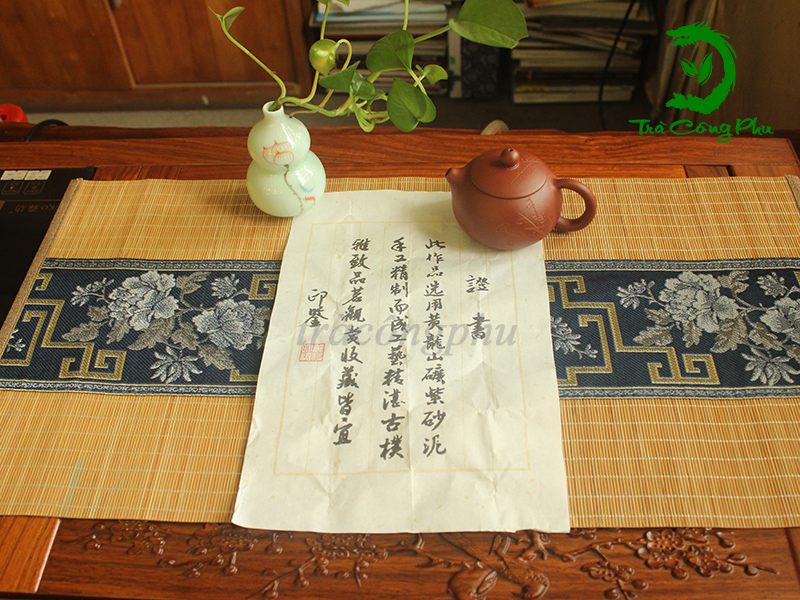 Trà Công Phu
證書
此作品选用黄龍山礦紫砂泥
手工精制而成工藝精湛古樸
雅致品茗觀賞收藏皆宜
印鑒
tracongphu